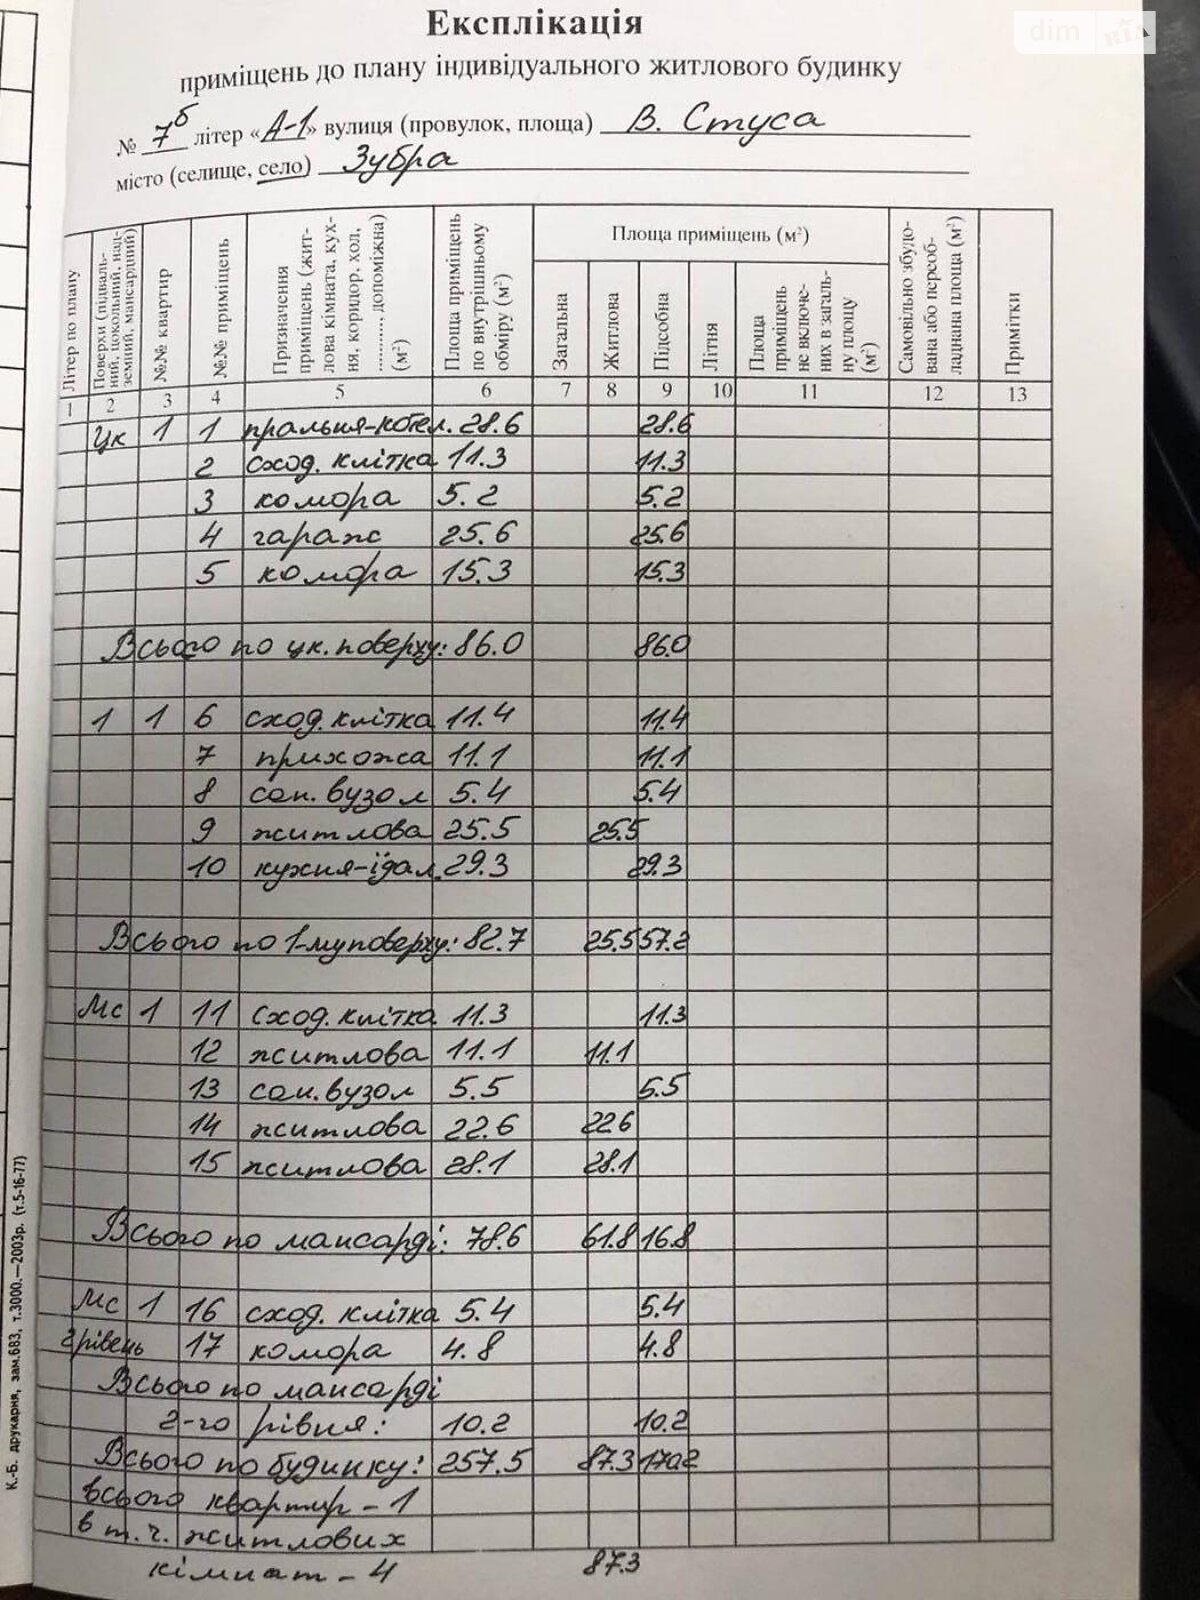 dim RIA
Експлікація
приміщень до плану індивідуального житлового будинку
№ 7б літер «А-1» вулиця (провулок, площа) В. Стуса
місто (селище, село) Зубра
Літер по плану
Поверхи (підвальний, цокольний, надземний, мансардний)
№№ квартир
№№ приміщень
Призначення приміщень (житлова кімната, кухня, коридор, хол, ............, допоміжна) (м²)
Площа приміщень по внутрішньому обміру (м²)
Площа приміщень (м²)
Загальна
Житлова
Підсобна
Літня
Площа приміщень не включених в загальну площу (м²)
Самовільно збудована або переобладнана площа (м²)
Примітки
1 2 3 4 5 6 7 8 9 10 11 12 13
Цк 1 1 пральня-котел. 28.6 28.6
2 сход. клітка 11.3 11.3
3 комора 5.2 5.2
4 гараж 25.6 25.6
5 комора 15.3 15.3
Всього по цк. поверху: 86.0 86.0
1 1 6 сход. клітка 11.4 11.4
7 прихожа 11.1 11.1
8 сан. вузол 5.4 5.4
9 житлова 25.5 25.5
10 кухня-їдал. 29.3 29.3
Всього по 1-му поверху: 82.7 25.5 57.2
Мс 1 11 сход. клітка 11.3 11.3
12 житлова 11.1 11.1
13 сан. вузол 5.5 5.5
14 житлова 22.6 22.6
15 житлова 28.1 28.1
Всього по мансарді: 78.6 61.8 16.8
Мс 1 16 сход. клітка 5.4 5.4
2 рівень 17 комора 4.8 4.8
Всього по мансарді
2-го рівня: 10.2 10.2
Всього по будинку: 257.5 87.3 170.2
всього квартир - 1
в т.ч. житлових
кімнат - 4 87.3
К.-Б. друкарня, зам.683, т.3000.—2003р. (т.5-16-77)